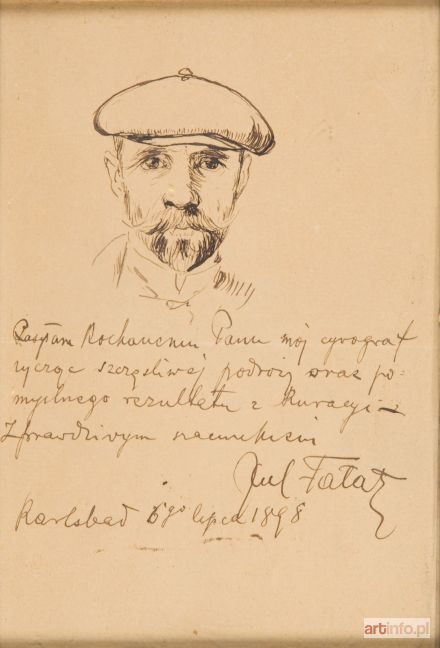 Kochanemu Panu mój cyrograf
życząc szczęśliwej podróży oraz po-
myślnego rezultatu z kuracyi –
Z prawdziwym szacunkiem
Jul Fałat
Karlsbad 6go lipca 1898
artinfo.pl